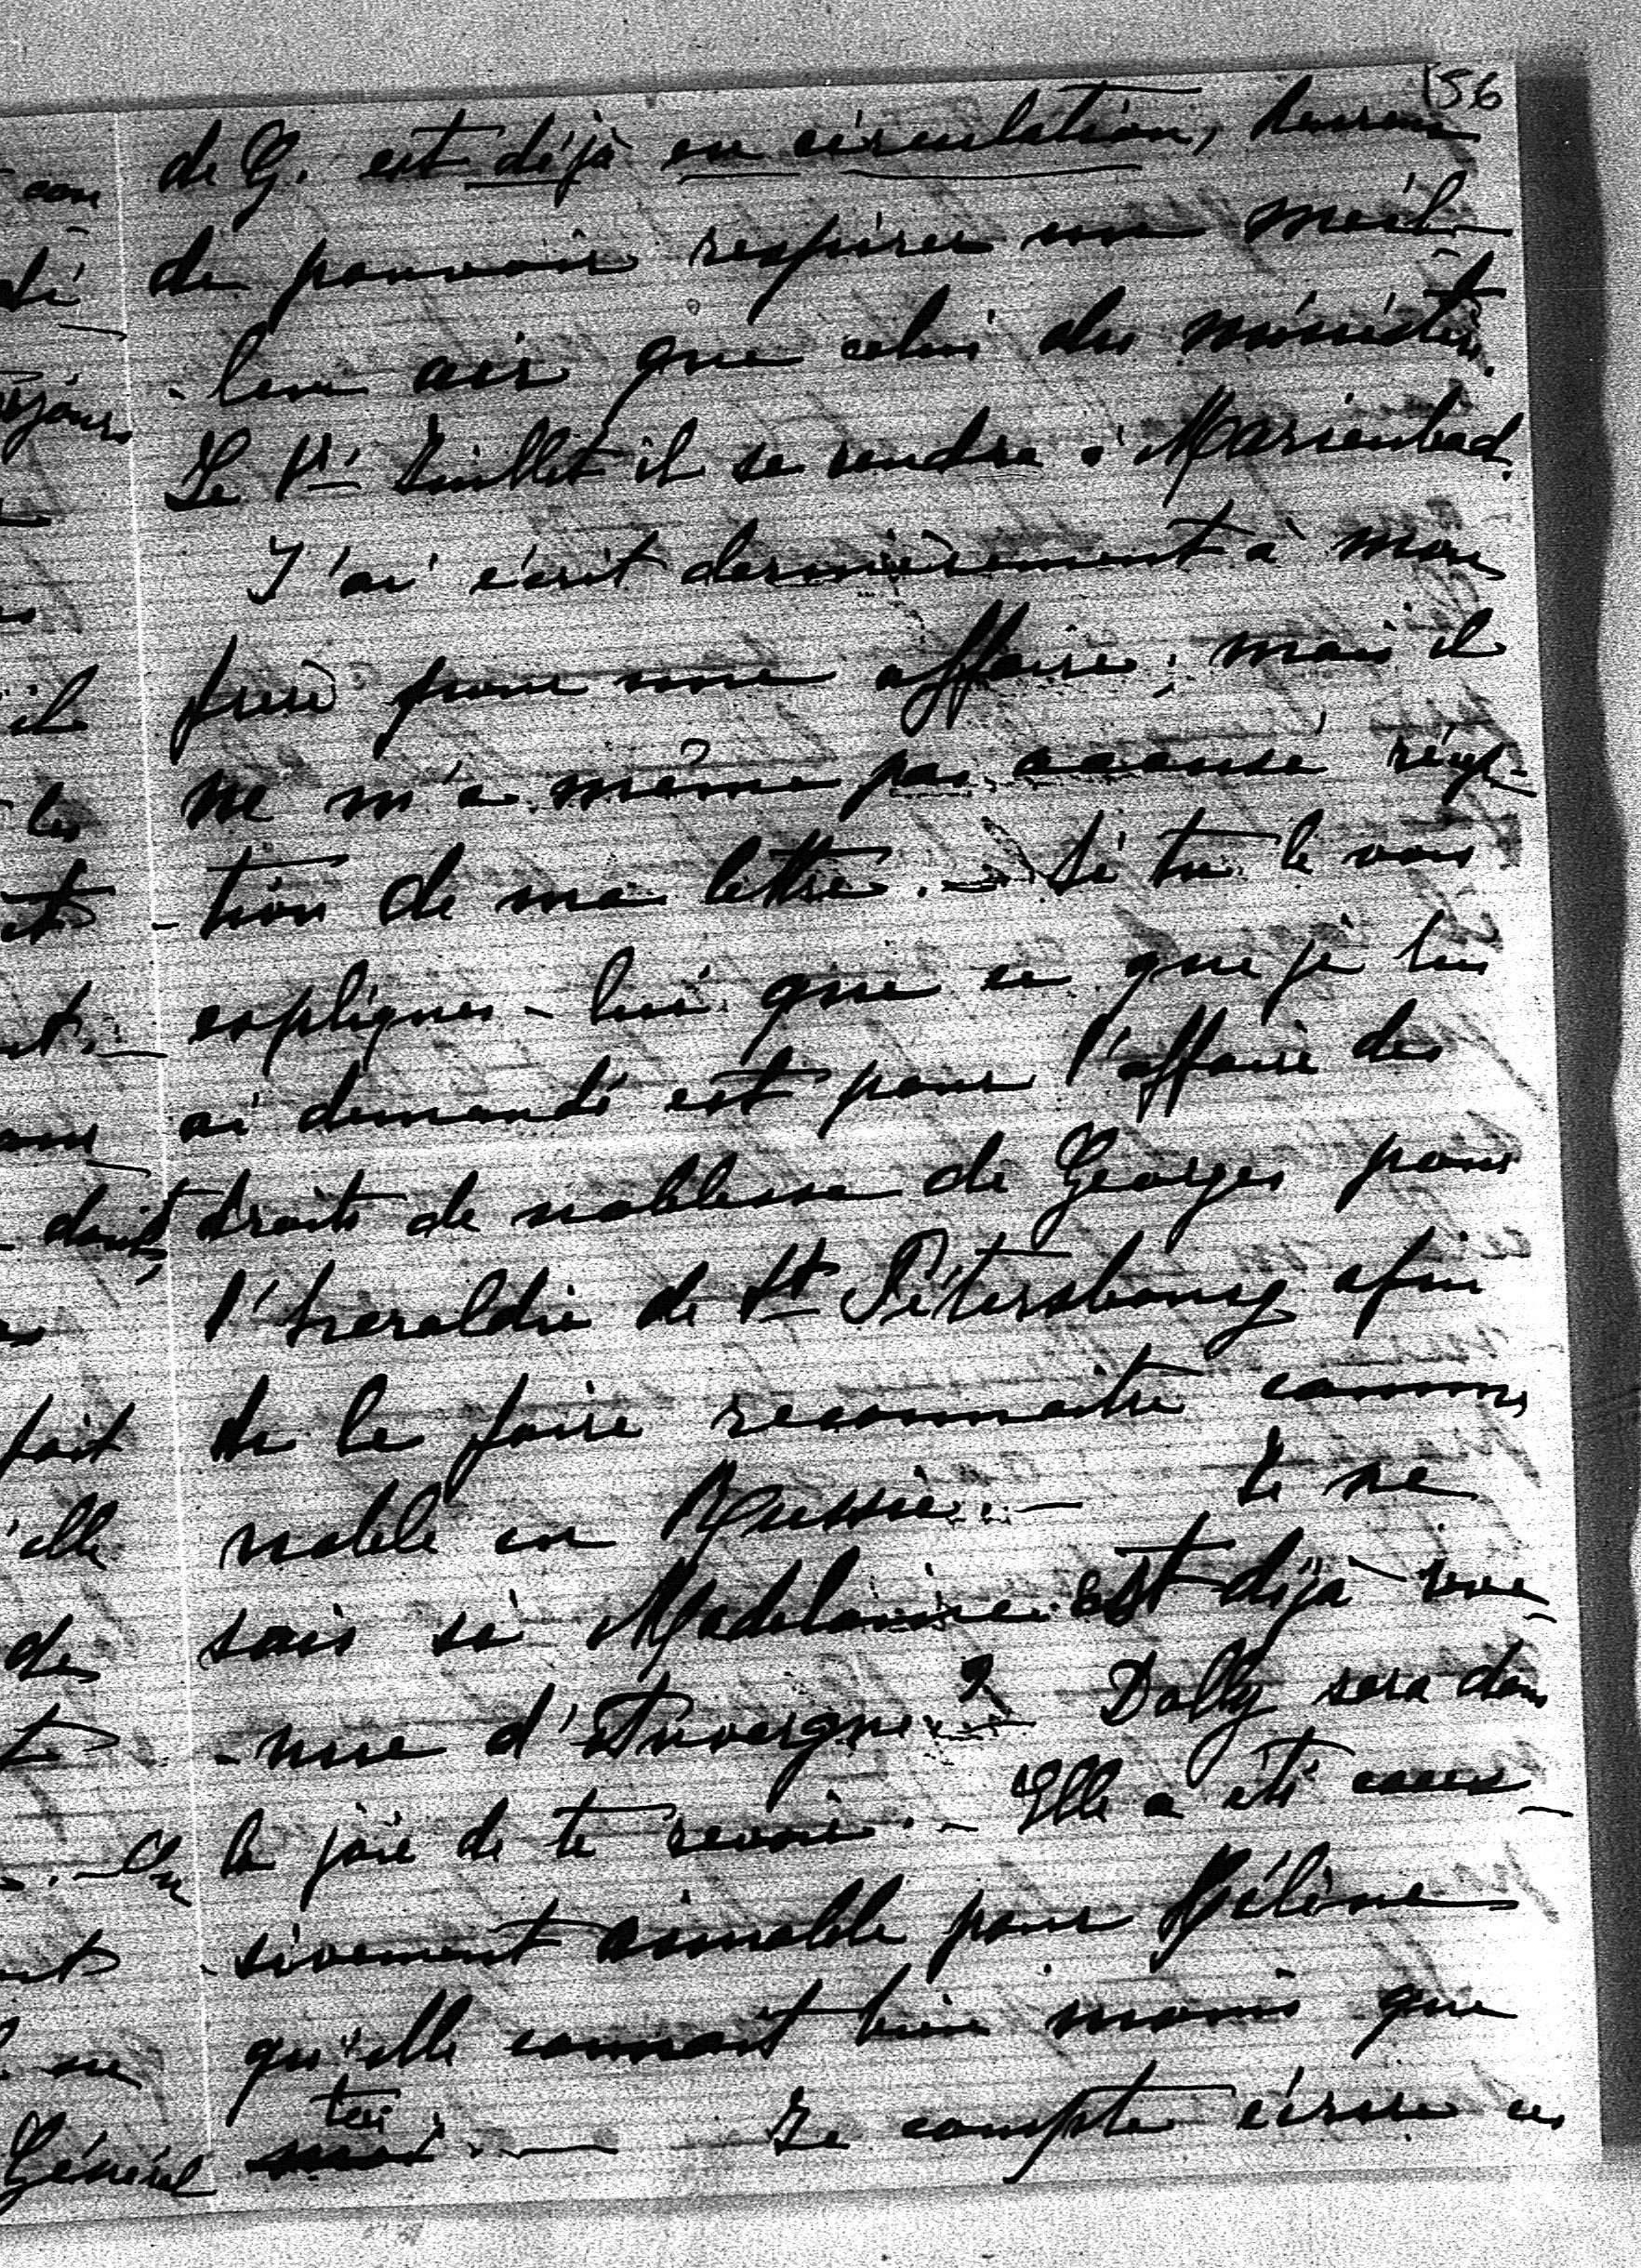 156
de G. est déjà en circulation, heureux
de pouvoir respirer un meil-
-leur air que celui du ministère.
Le 1er Juillet il se rendra à Marienbad.
J'ai écrit dernièrement à mon
frère pour une affaire; mais il
ne m'a même pas accusé récep-
-tion de ma lettre. — Si tu le vois
expliques-lui que ce que je lui
ai demandé est pour l'affaire des
droits de noblesse de Georges pour
l'heraldie de St Pétersbourg afin
de le faire reconnaitre comme
noble en Russie. — Je ne
sais si Madelaine est déjà reve-
-nue d'Auvergne? — Dolly sera dans
la joie de te revoir. — Elle a été exces-
-sivement aimable pour Hélène
qu'elle connait bien moins que
toi. — Je compte écrire ces